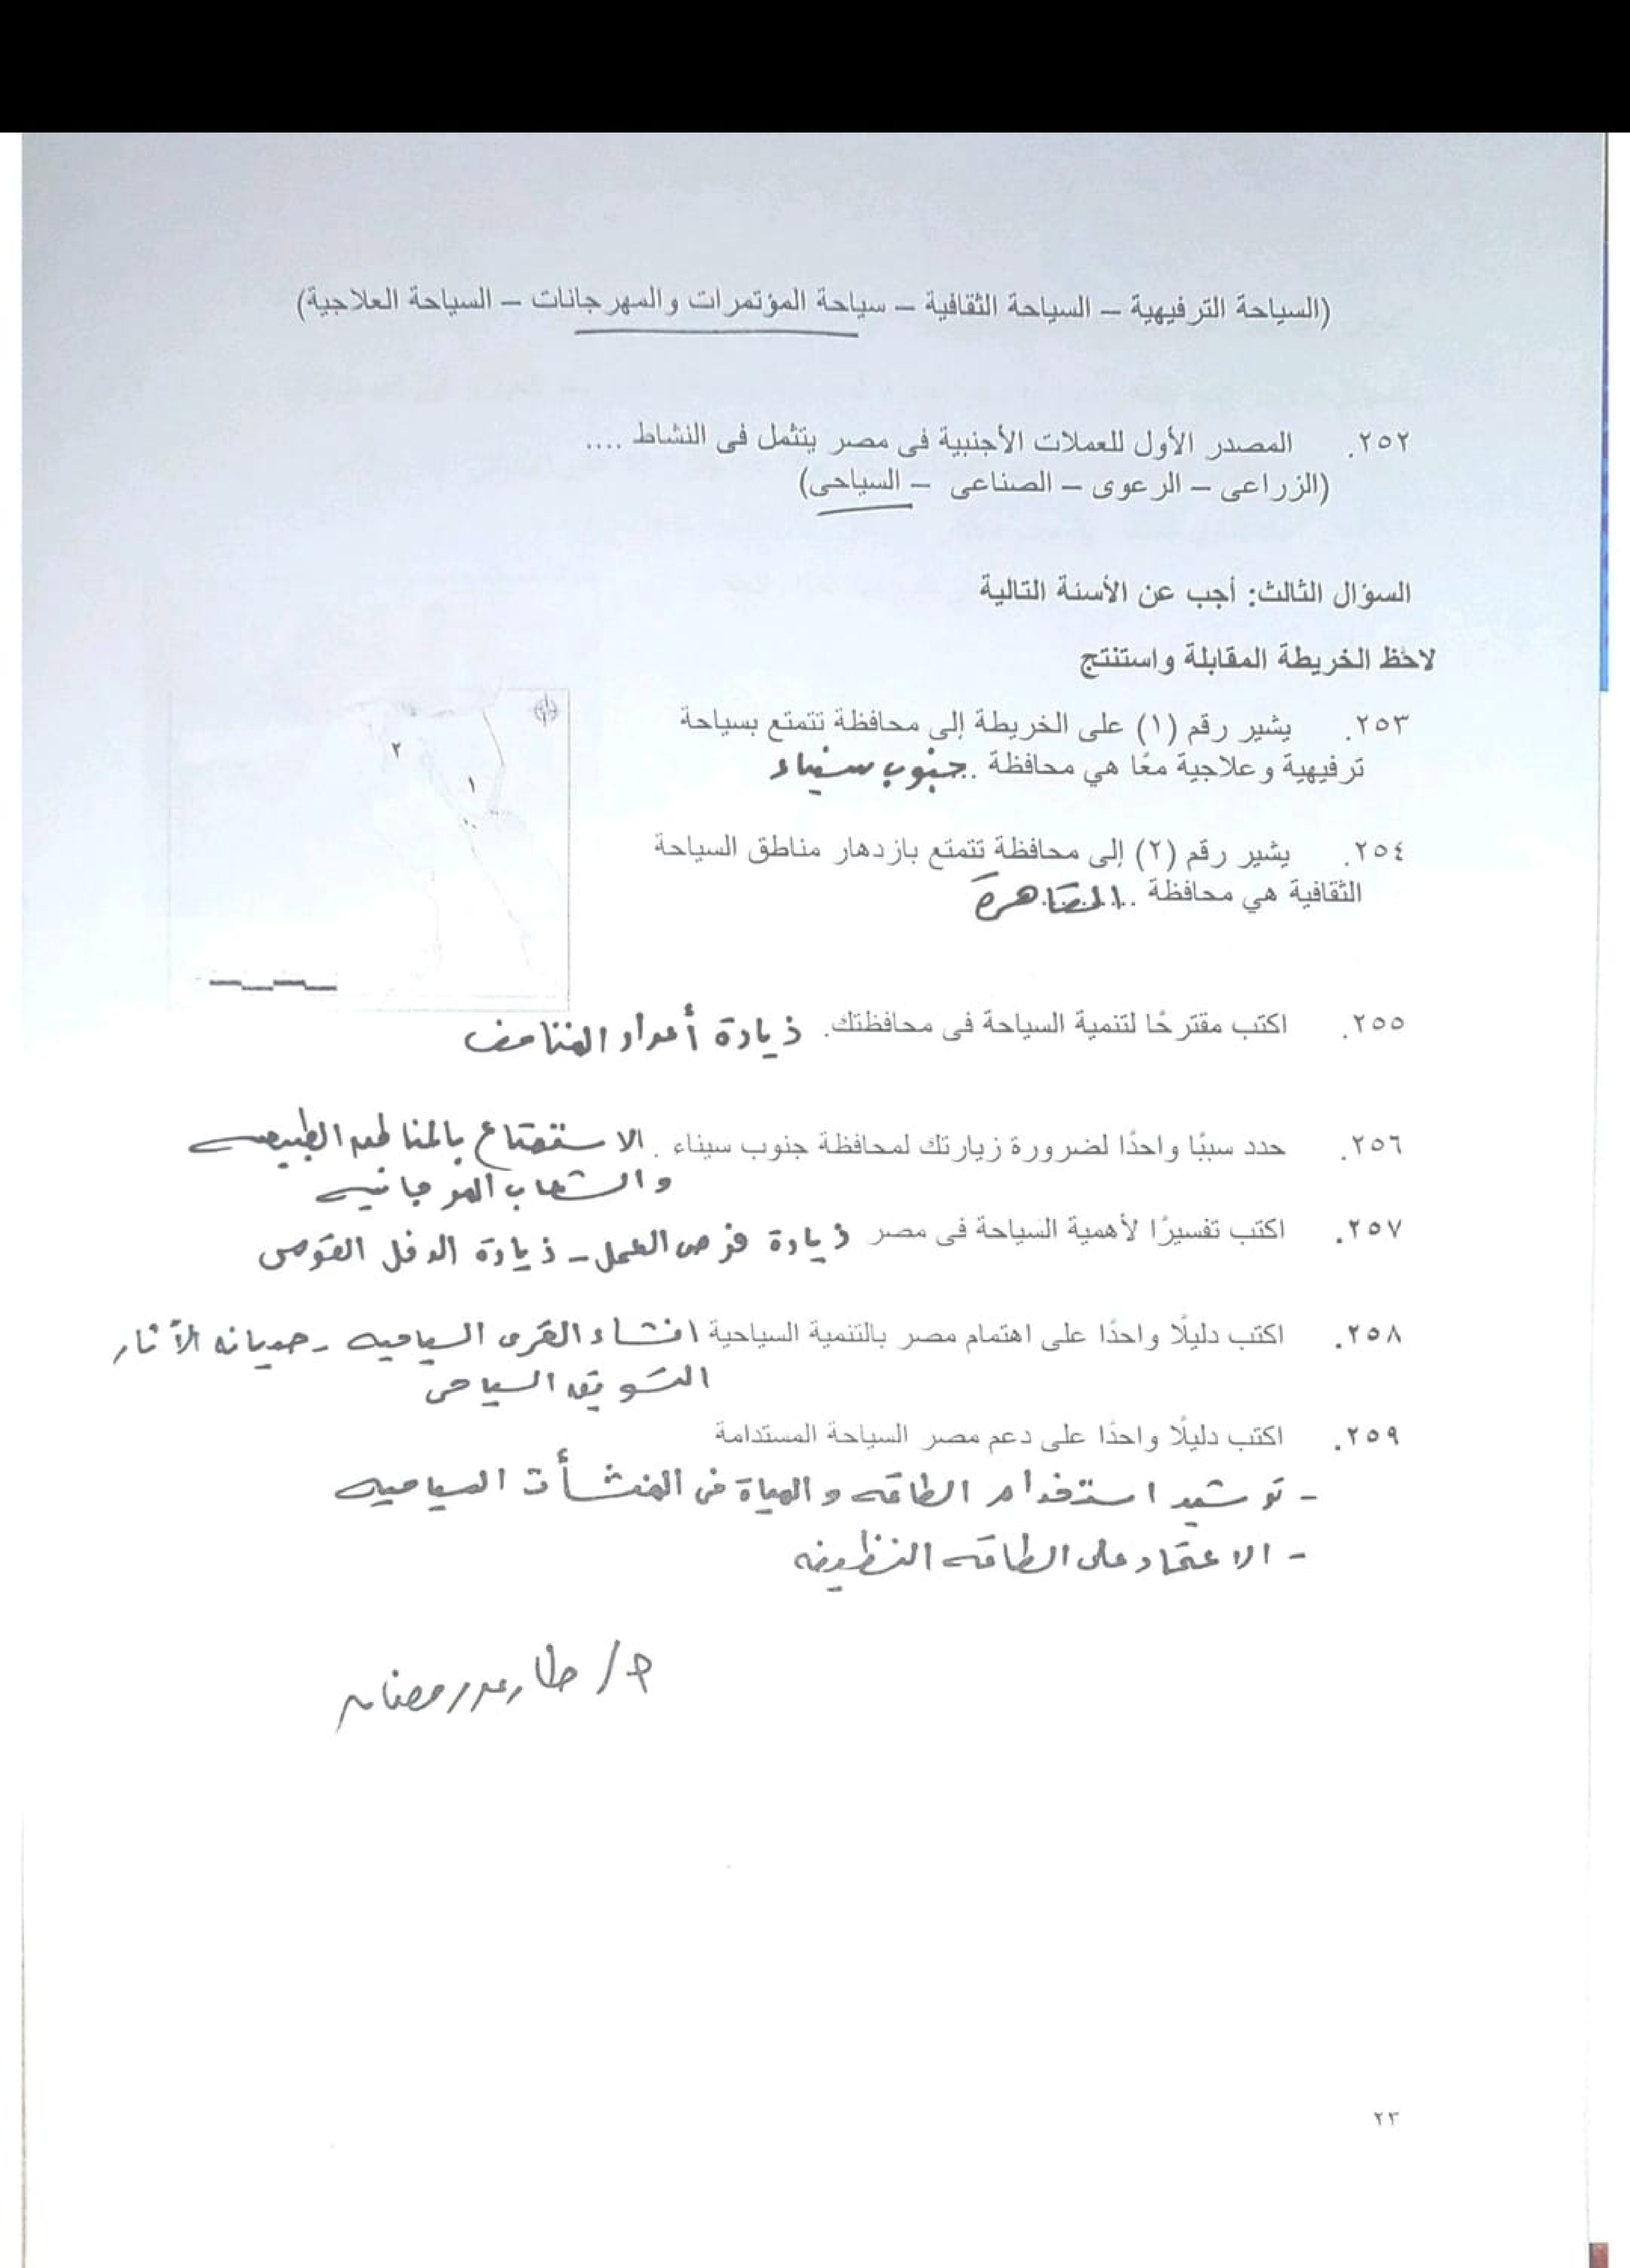 (السياحة الترفيهية – السياحة الثقافية – سياحة المؤتمرات والمهرجانات – السياحة العلاجية)
٢٥٢. المصدر الأول للعملات الأجنبية فى مصر يتثمل فى النشاط ....
(الزراعى – الرعوى – الصناعى – السياحى)
السؤال الثالث: أجب عن الأسنة التالية
لاحظ الخريطة المقابلة واستنتج
٢٥٣. يشير رقم (١) على الخريطة إلى محافظة تتمتع بسياحة
ترفيهية وعلاجية معًا هي محافظة .جنوب سيناء
٢
١
٢٥٤. يشير رقم (٢) إلى محافظة تتمتع بازدهار مناطق السياحة
الثقافية هي محافظة .القاهرة
٢٥٥. اكتب مقترحًا لتنمية السياحة فى محافظتك. زيادة أعداد المتاحف
٢٥٦. حدد سببًا واحدًا لضرورة زيارتك لمحافظة جنوب سيناء . الاستمتاع بالمناظر الطبيعيه
والشعاب المرجانيه
٢٥٧. اكتب تفسيرًا لأهمية السياحة فى مصر زيادة فرص العمل - زيادة الدخل القومى
٢٥٨. اكتب دليلًا واحدًا على اهتمام مصر بالتنمية السياحية انشاء القرى السياحيه - صيانه الآثار
التسويق السياحى
٢٥٩. اكتب دليلًا واحدًا على دعم مصر السياحة المستدامة
- ترشيد استخدام الطاقه و المياة فى المنشأت السياحيه
- الاعتماد على الطاقه النظيفه
رمضان
٢٣